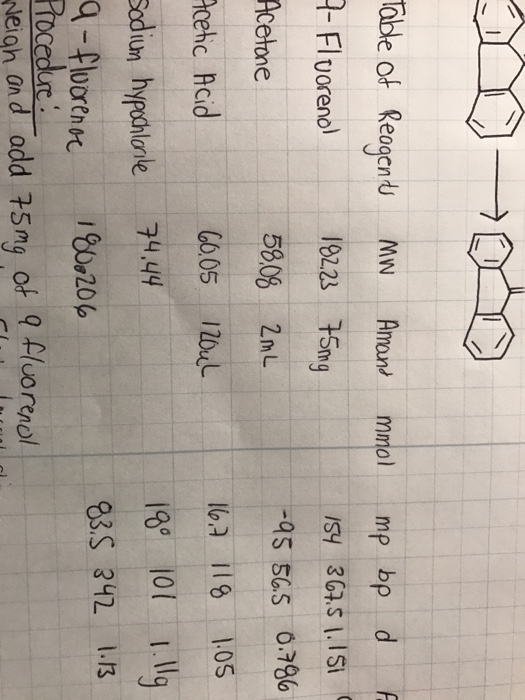 Table of Reagents MW Amount mmol mp bp d
9-Fluorenol 182.23 75mg 154 367.5 1.151
Acetone 58.08 2mL -95 56.5 0.786
Acetic Acid 60.05 120uL 16.7 118 1.05
Sodium hypochlorite 74.44 18° 101 1.11g
9-fluorenone 180.206 83.5 342 1.13
Procedure:
Weigh and add 75mg of 9 fluorenol